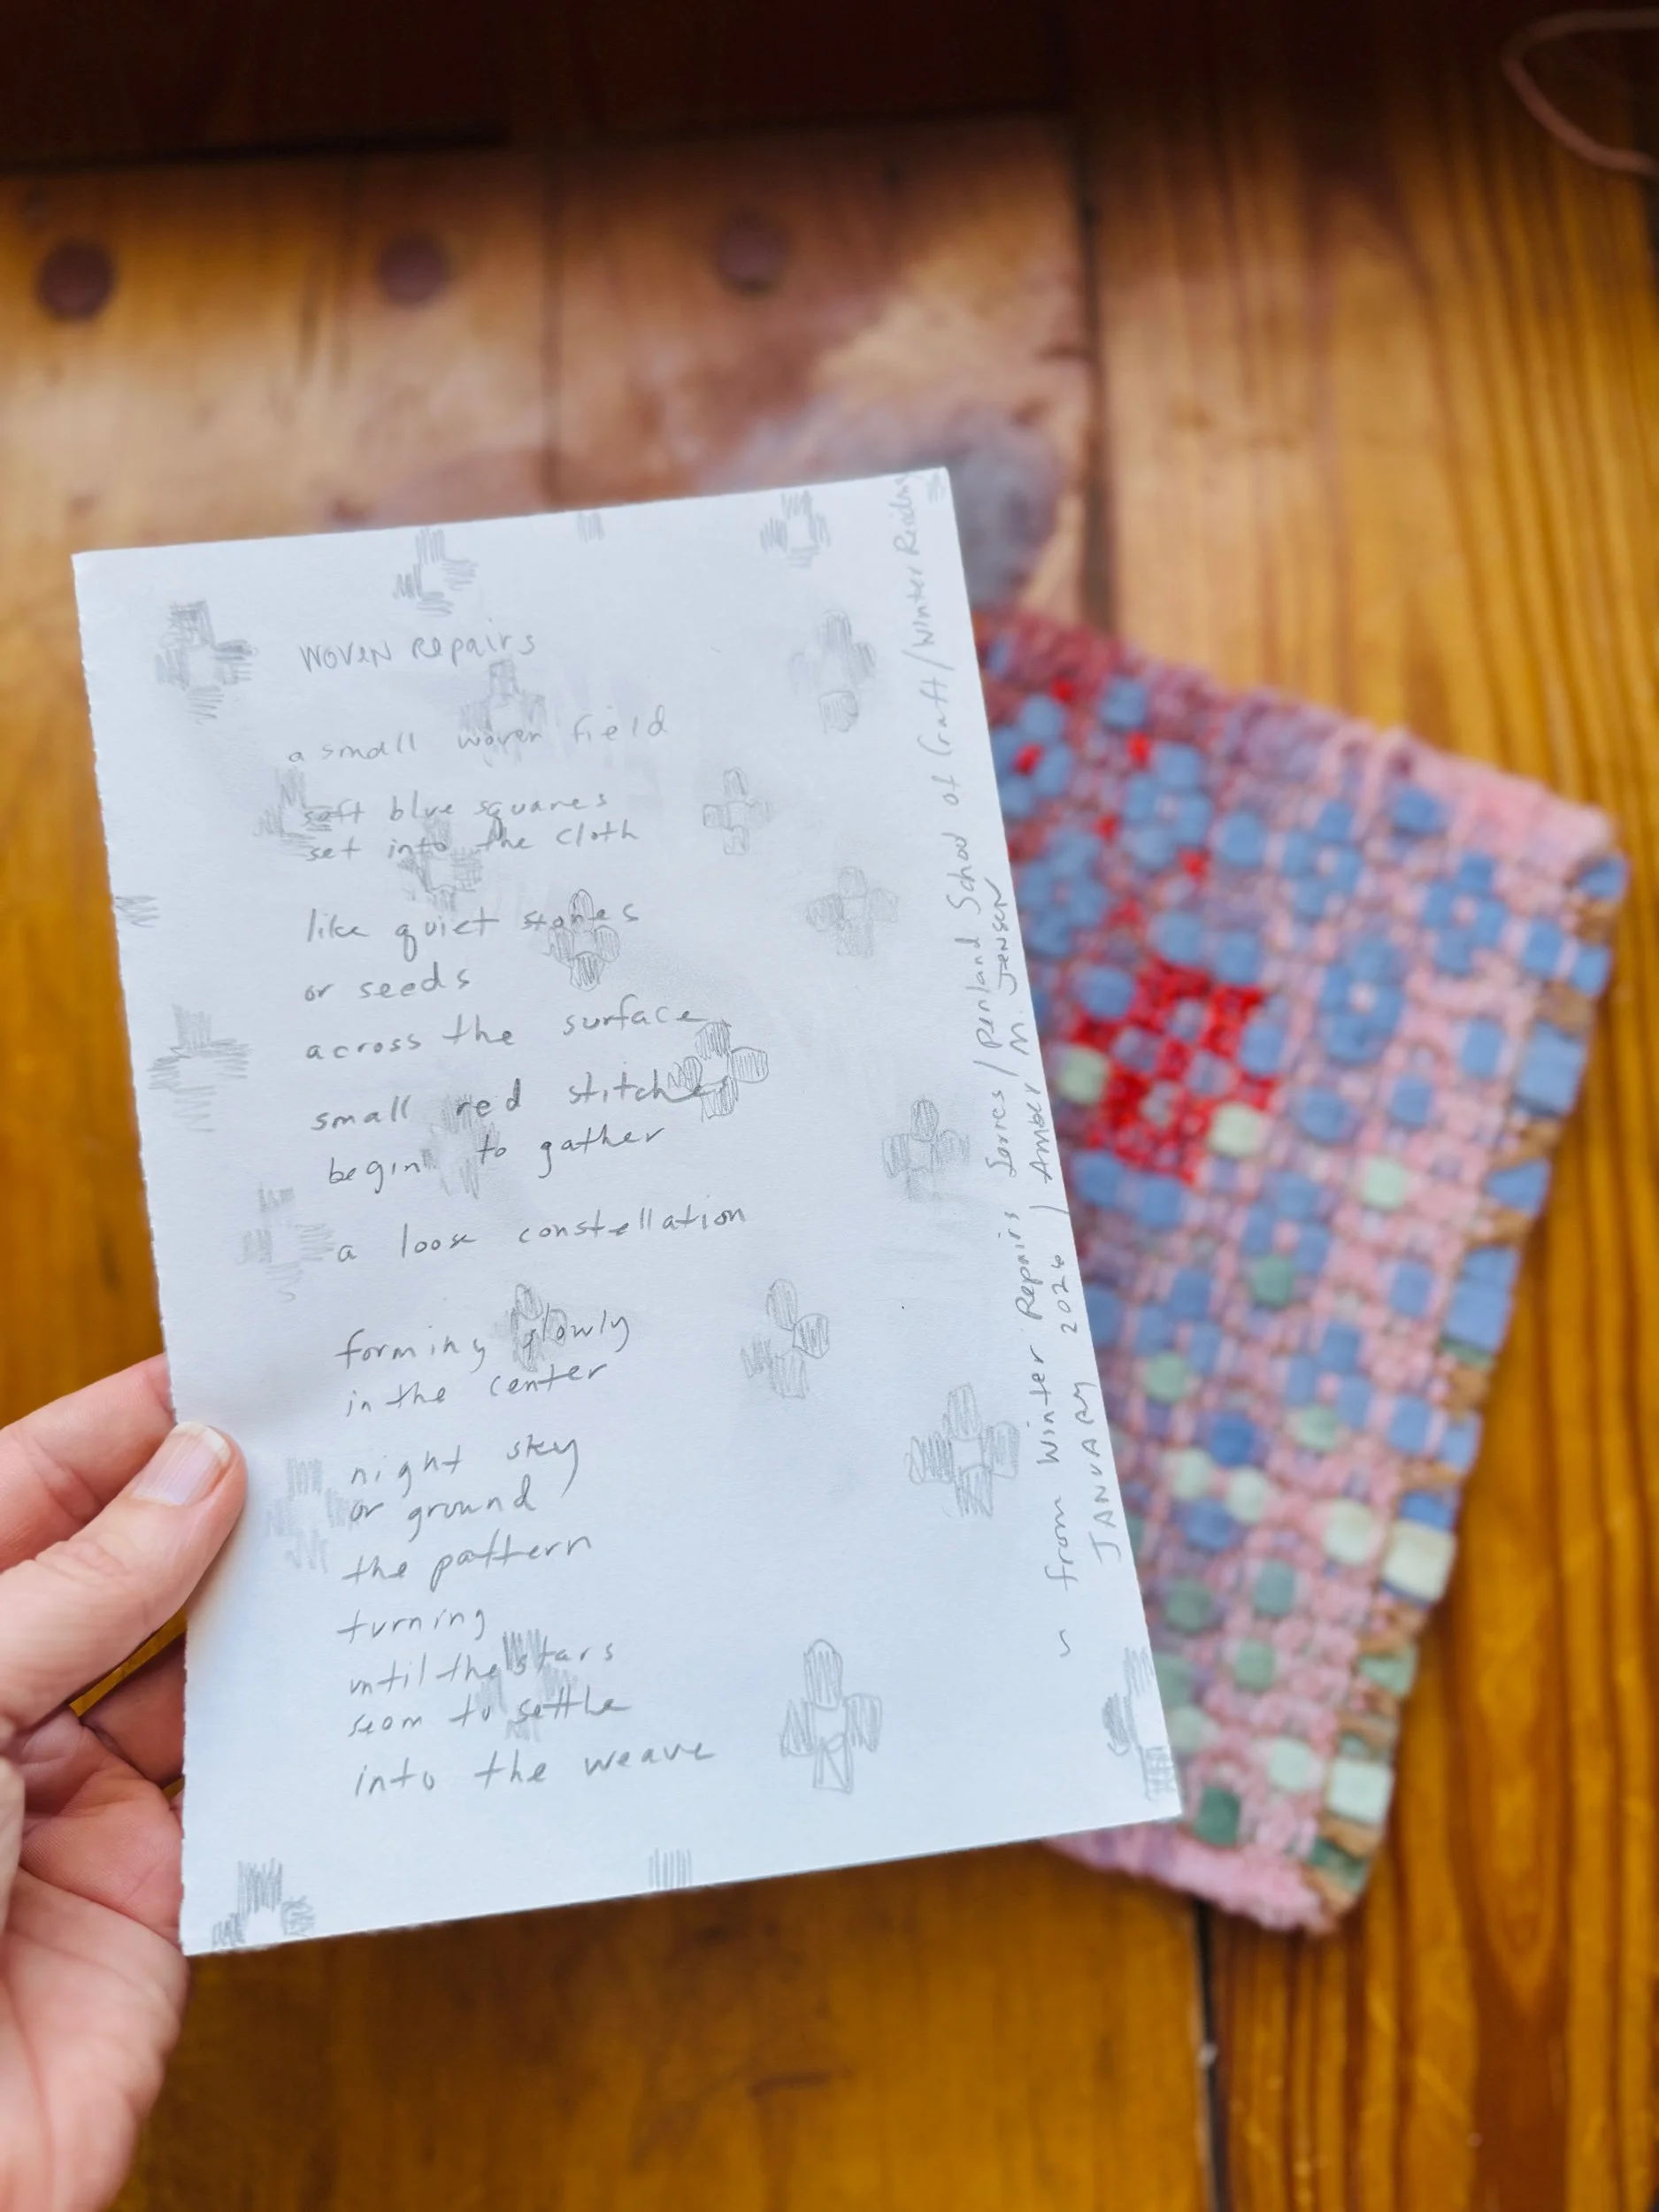 WOVEN REPAIRS
a small woven field
soft blue squares
set into the cloth
like quiet stones
or seeds
across the surface
small red stitches
begin to gather
a loose constellation
forming slowly
in the center
night sky
or ground
the pattern
turning
until the stars
seem to settle
into the weave
from Winter Repairs Series / Penland School of Craft / Winter Residency
JANUARY 2026 / Amber M. Jensen